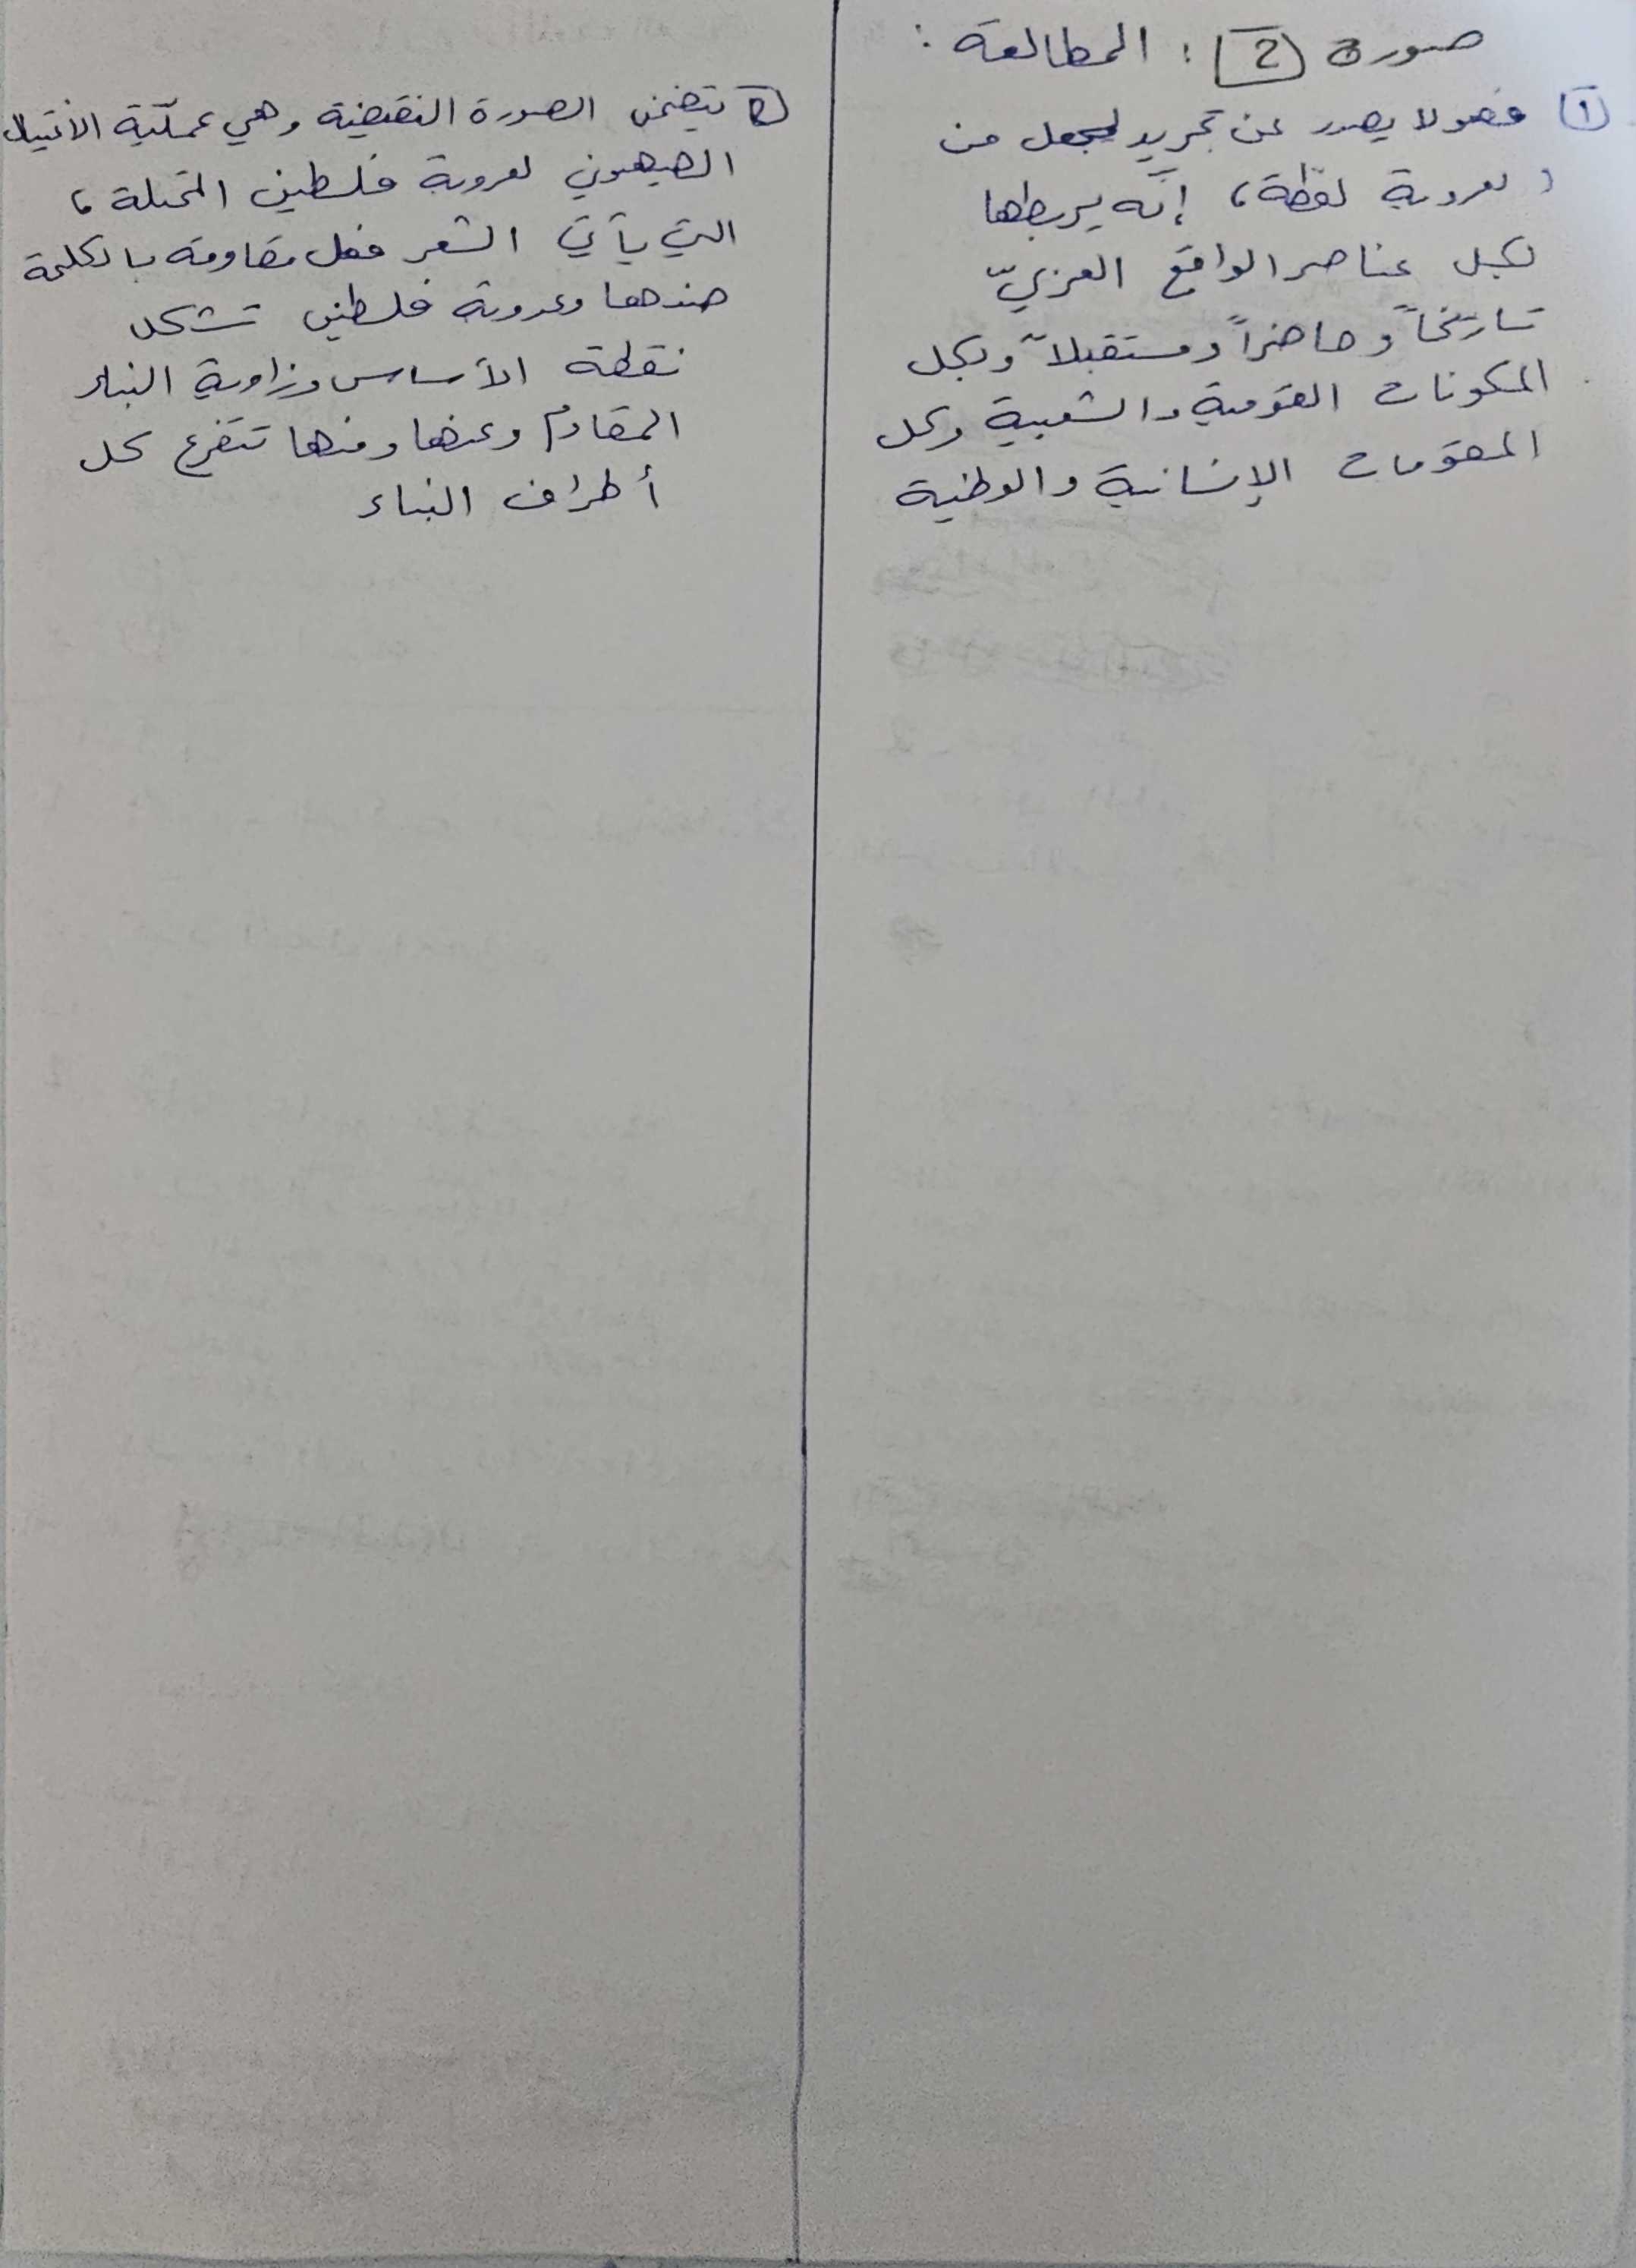 صورة 2 : المطالعة :
1 فهو لا يصدر عن تجريد ليجعل من
العروبة لفظة، إنّه يربطها
بكل عناصر الواقع العربيّ
تاريخاً وحاضراً ومستقبلاً وبكل
المكونات القومية والشعبية وكل
المقومات الإنسانية والوطنية
2 تتضمن الصورة النقيضية وهي عمليّة الاغتيال
الصهيوني لعروبة فلسطين المحتلة،
التي يأتي الشعر فعل مقاومة بالكلمة
ضدها وعروبة فلسطين تشكل
نقطة الأساس وزاوية البناء
المقاوم وعنها ومنها تتفرع كل
أطراف البناء